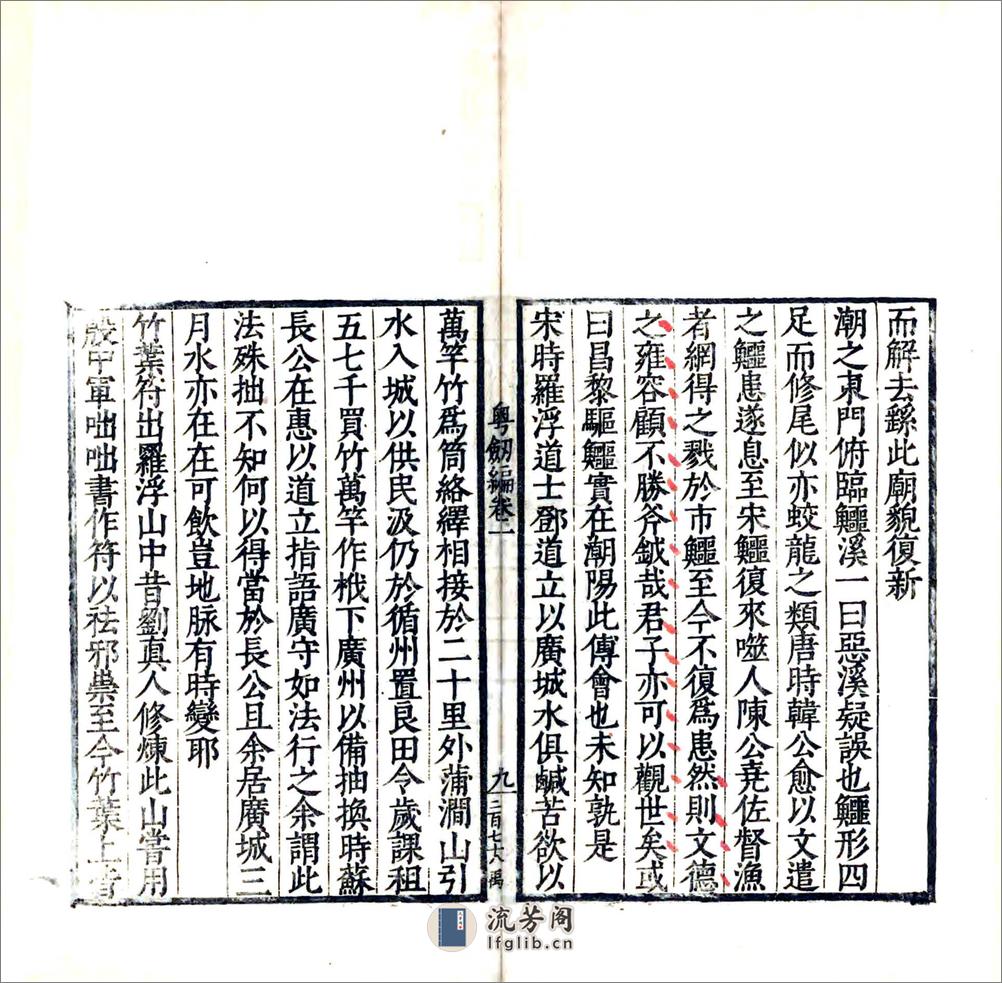 而解去繇此廟貌復新
潮之東門俯臨鱷溪一曰惡溪疑誤也鱷形四
足而修尾似亦蛟龍之類唐時韓公愈以文遣
之鱷患遂息至宋鱷復來噬人陳公堯佐督漁
者網得之戮於市鱷至今不復爲患然則文德
之雍容顧不勝斧鉞哉君子亦可以觀世矣或
曰昌黎驅鱷實在潮陽此傳會也未知孰是
宋時羅浮道士鄧道立以廣城水俱鹹苦欲以
粵劒編卷二
九
二百七六禹
萬竿竹爲筒絡繹相接於二十里外蒲澗山引
水入城以供民汲仍於循州置良田令歲課租
五七千買竹萬竿作栰下廣州以備抽換時蘇
長公在惠以道立指語廣守如法行之余謂此
法殊拙不知何以得當於長公且余居廣城三
月水亦在在可飲豈地脉有時變耶
竹葉符出羅浮山中昔劉真人修煉此山嘗用
殷甲軍咄咄書作符以祛邪祟至今竹葉上皆
流芳阁
lfglib.cn